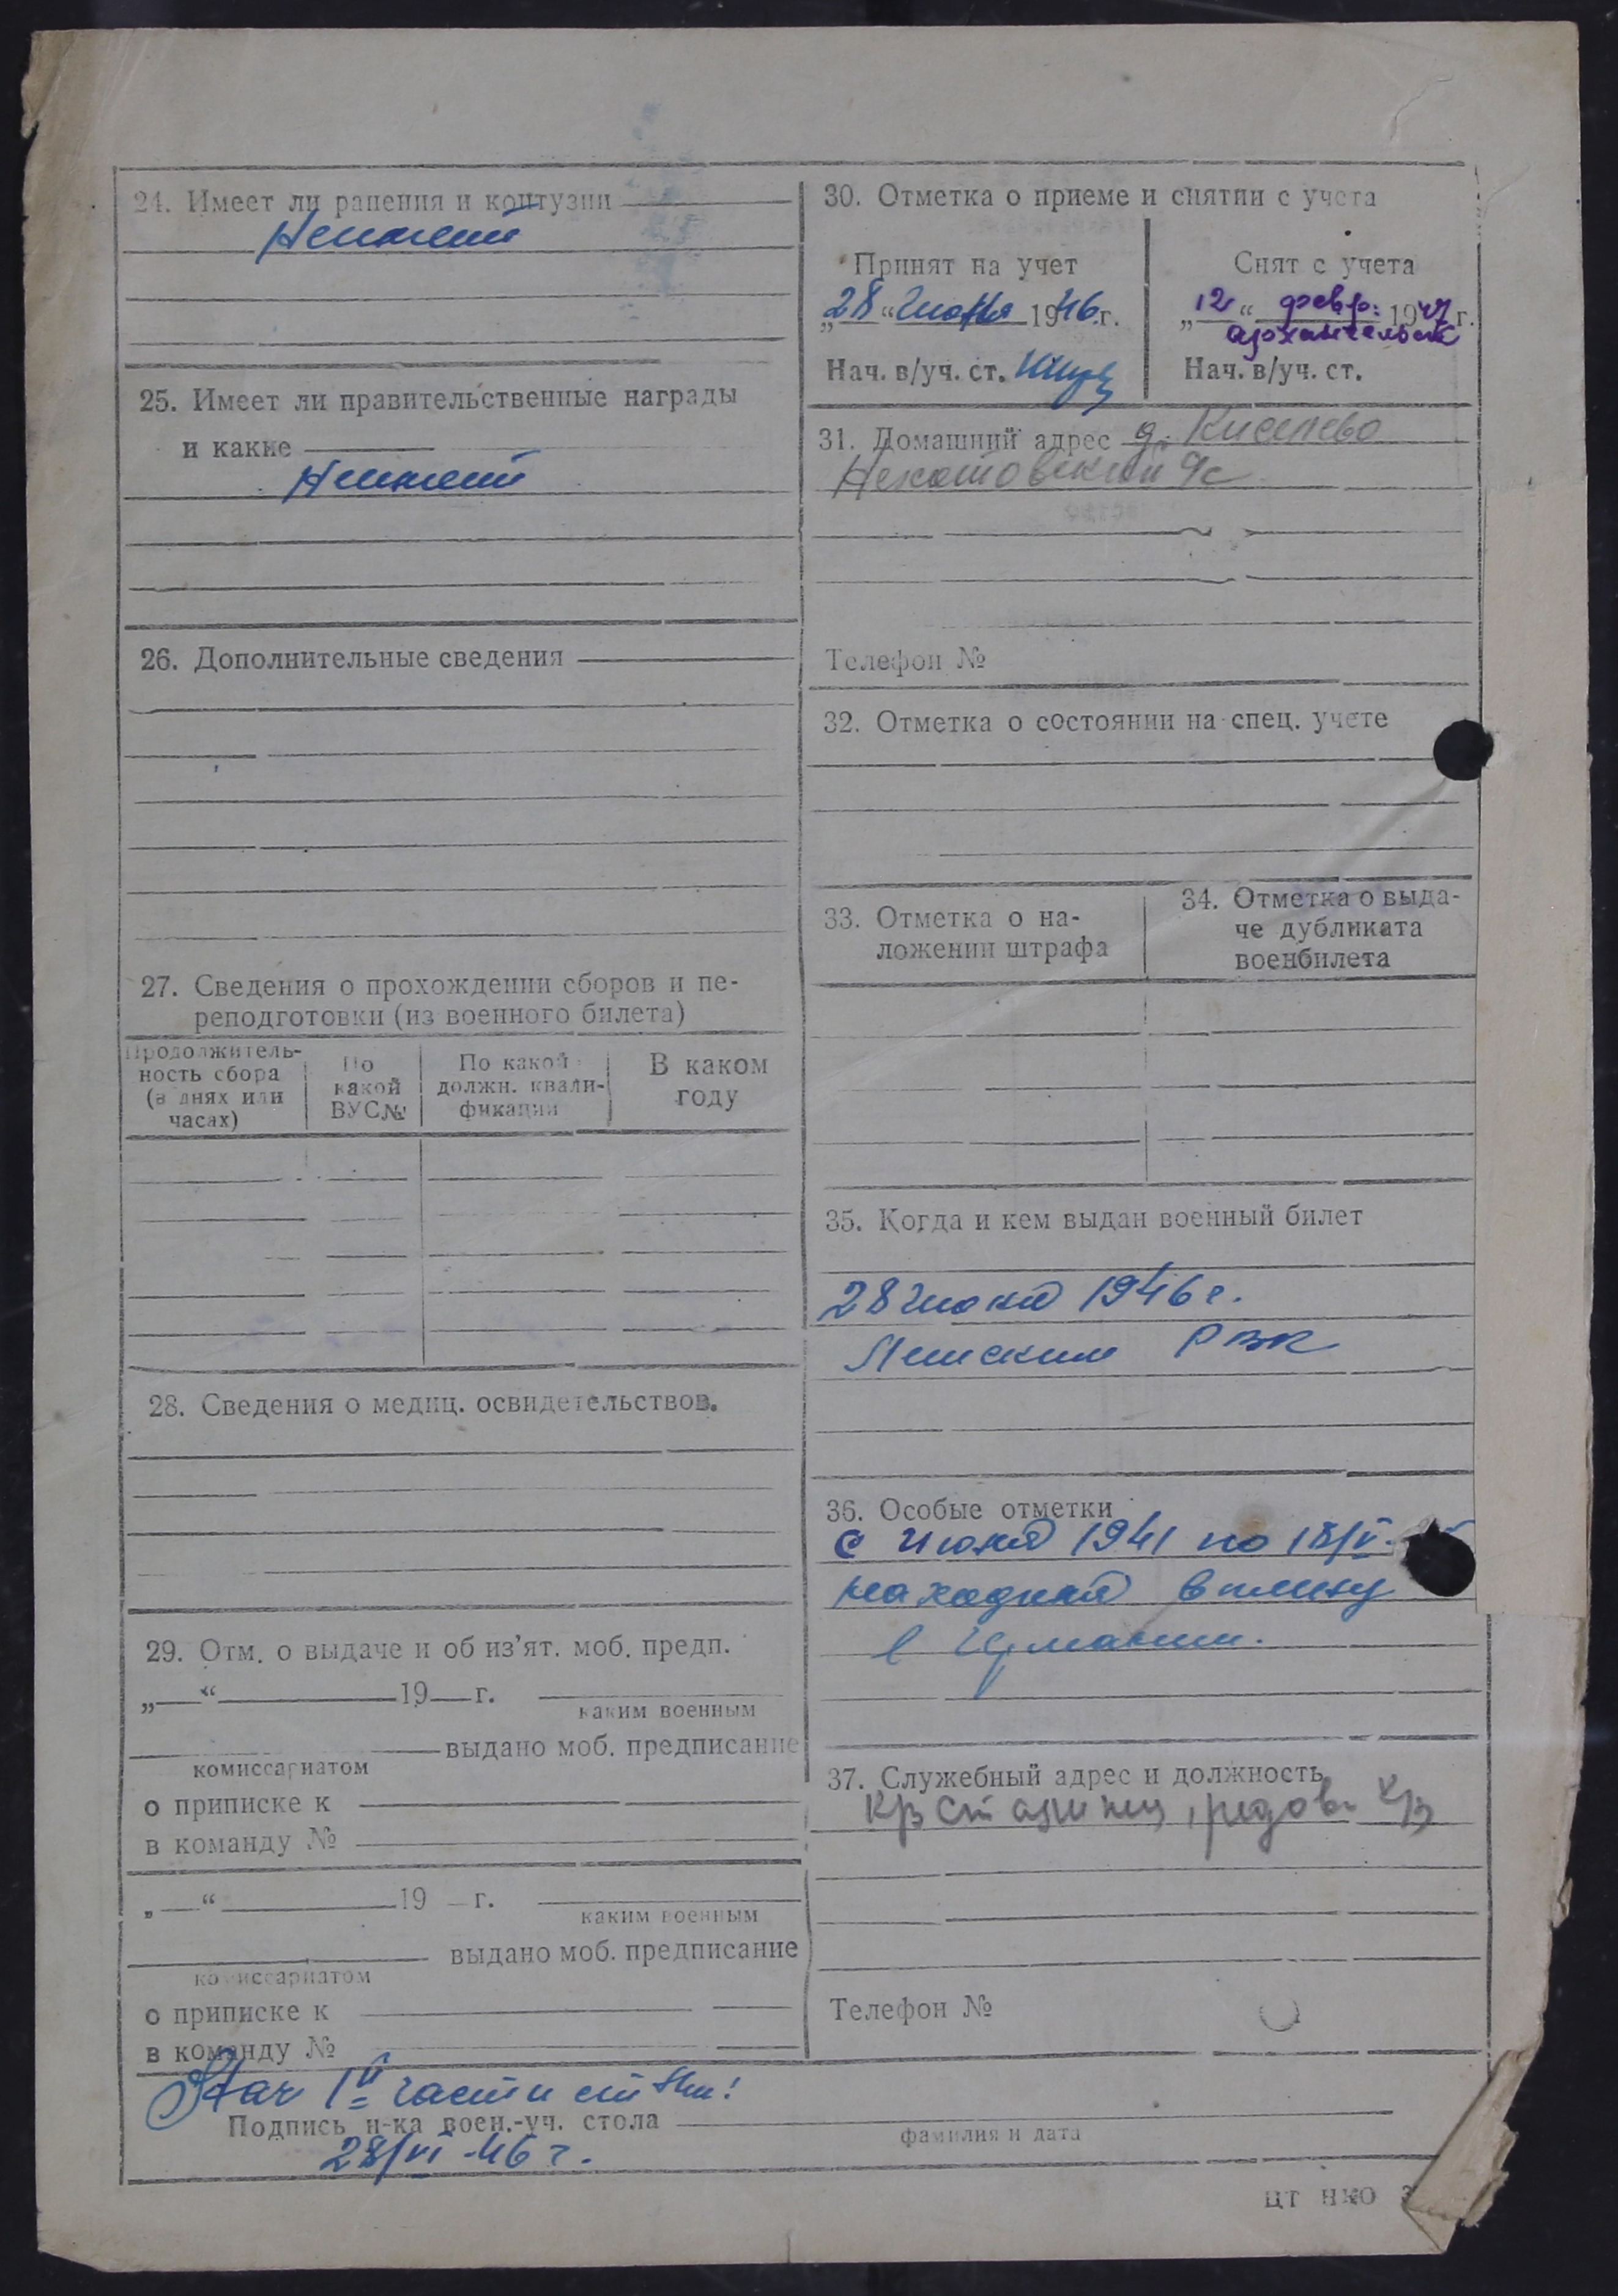 24. Имеет ли ранения и контузии
Неимеет
25. Имеет ли правительственные награды
и какие
Неимеет
26. Дополнительные сведения
27. Сведения о прохождении сборов и пе-
реподготовки (из военного билета)
Продолжитель-
ность сбора
(в днях или
часах)
По
какой
ВУС№
По какой
должн. квали-
фикации
В каком
году
28. Сведения о медиц. освидетельствов.
29. Отм. о выдаче и об из’ят. моб. предп.
„ “ 19 г.
каким военным
выдано моб. предписание
комиссариатом
о приписке к
в команду №
„ “ 19 г.
каким военным
выдано моб. предписание
комиссариатом
о приписке к
в команду №
30. Отметка о приеме и снятии с учета
Принят на учет
„28“ Июня 1946 г.
Нач. в/уч. ст.
Снят с учета
„12“ февр. 1947 г.
Архангельск
Нач. в/уч. ст.
31. Домашний адрес д. Киселево
с/с
Телефон №
32. Отметка о состоянии на спец. учете
33. Отметка о на-
ложении штрафа
34. Отметка о выда-
че дубликата
военбилета
35. Когда и кем выдан военный билет
28 Июня 1946 г.
РВК
36. Особые отметки
с Июня 1941 по 18/V-
находился в плену
в Германии.
37. Служебный адрес и должность
рядов.
Телефон №
Нач 1й части
Подпись н-ка воен.-уч. стола
фамилия и дата
28/VI-46 г.
ЦТ НКО